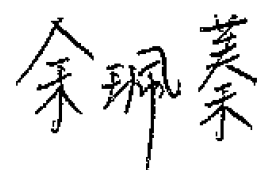 余珮蓁